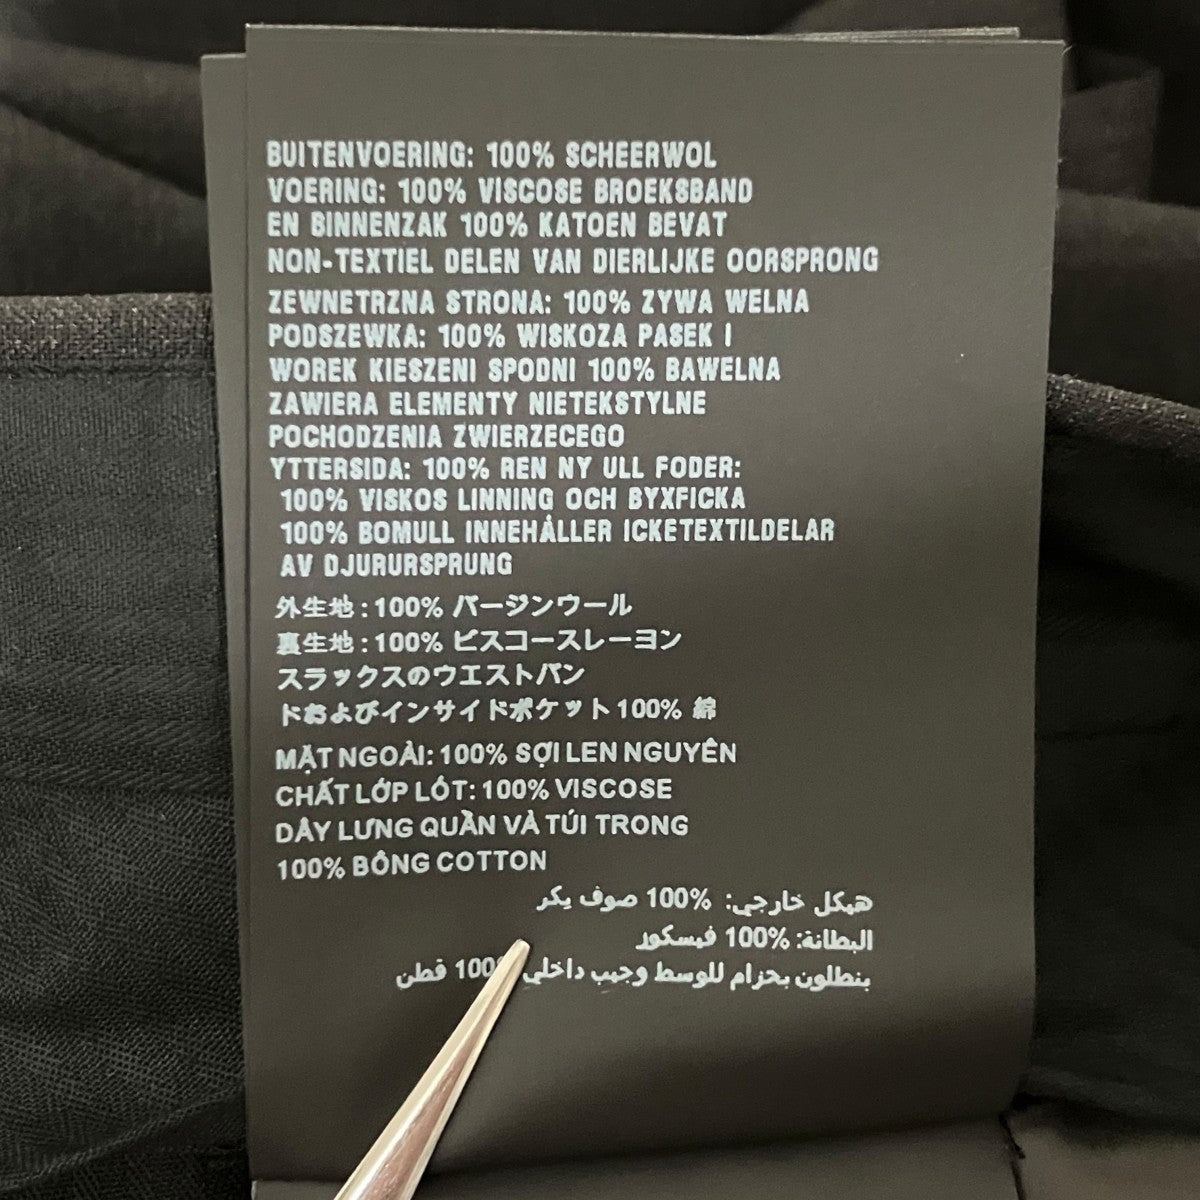 BUITENVOERING: 100% SCHEERWOL
VOERING: 100% VISCOSE BROEKSBAND
EN BINNENZAK 100% KATOEN BEVAT
NON-TEXTIEL DELEN VAN DIERLIJKE OORSPRONG
ZEWNETRZNA STRONA: 100% ZYWA WELNA
PODSZEWKA: 100% WISKOZA PASEK I
WOREK KIESZENI SPODNI 100% BAWELNA
ZAWIERA ELEMENTY NIETEKSTYLNE
POCHODZENIA ZWIERZECEGO
YTTERSIDA: 100% REN NY ULL FODER:
100% VISKOS LINNING OCH BYXFICKA
100% BOMULL INNEHÅLLER ICKETEXTILDELAR
AV DJURURSPRUNG
外生地:100% バージンウール
裏生地:100% ビスコースレーヨン
スラックスのウエストバン
ドおよびインサイドポケット100% 綿
MẶT NGOÀI: 100% SỢI LEN NGUYÊN
CHẤT LỚP LÓT: 100% VISCOSE
DÂY LƯNG QUẦN VÀ TÚI TRONG
100% BÔNG COTTON
هيكل خارجي: 100% صوف يكر
البطانة: 100% فيسكور
بنطلون بحزام للوسط وجيب داخلي 100% قطن